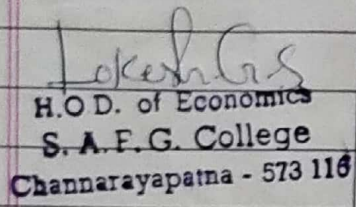 Lokesh G S
H.O D. of Economics
S. A. F. G. College
Channarayapatna - 573 116